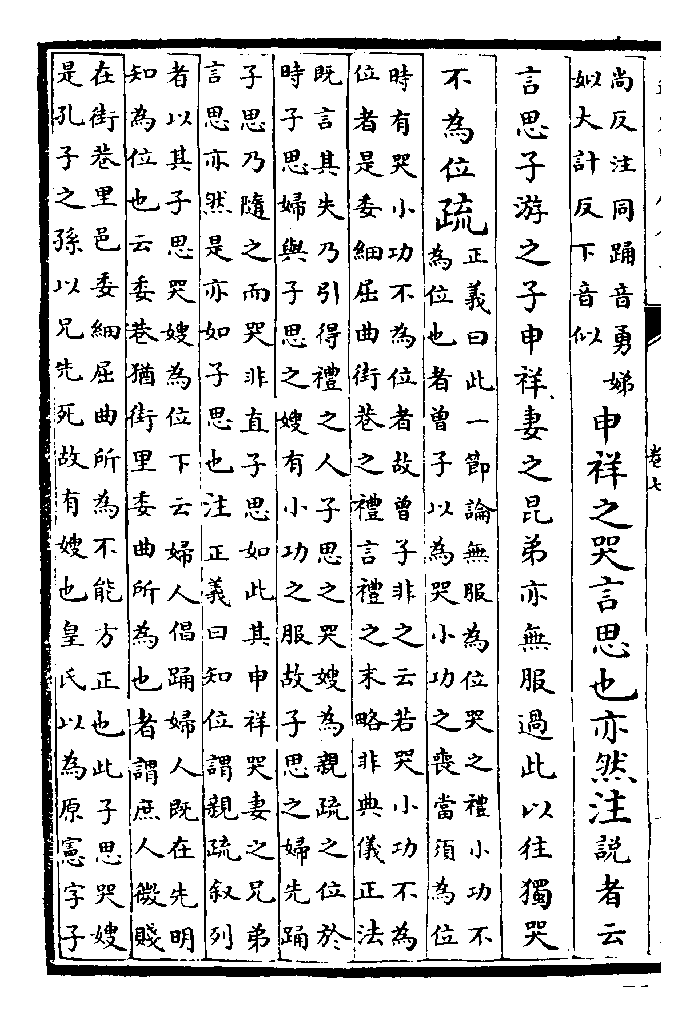 尚反注同踊音勇娣
姒大計反下音似
申祥之哭言思也亦然注說者云
言思子游之子申祥妻之昆弟亦無服過此以往獨哭
不為位疏
正義曰此一節論無服為位哭之禮小功不
為位也者曾子以為哭小功之喪當須為位
時有哭小功不為位者故曾子非之云若哭小功不為
位者是委細屈曲街巷之禮言禮之末略非典儀正法
既言其失乃引得禮之人子思之哭嫂為親疏之位於
時子思婦與子思之嫂有小功之服故子思之婦先踊
子思乃隨之而哭非直子思如此其申祥哭妻之兄弟
言思亦然是亦如子思也注正義曰知位謂親疏叙列
者以其子思哭嫂為位下云婦人倡踊婦人既在先明
知為位也云委巷猶街里委曲所為也者謂庶人微賤
在街巷里邑委細屈曲所為不能方正也此子思哭嫂
是孔子之孫以兄先死故有嫂也皇氏以為原憲字子
卷七